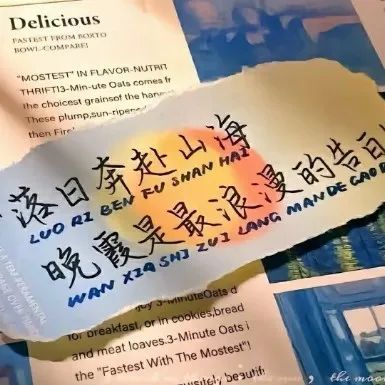 Delicious
FASTEST FROM BOXTO
BOWL-COMPARE!
"MOSTEST" IN FLAVOR-NUTRIT
THRIFT!3-Min-ute Oats comes fr
the choicest grainsof the harv
These plump,sun-ripene
then Fir
落日奔赴山海
LUO RI BEN FU SHAN HAI
晚霞是最浪漫的告白
WAN XIA SHI ZUI LANG MAN DE GAO B
joy 3-MinuteOats d
for breakfast, or in cookies,bread
and meat loaves.3-Minute Oats i
the "Fastest With The Mostest"!
the moo